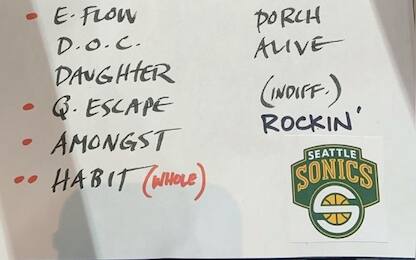 E. FLOW
D.O.C.
DAUGHTER
Q. ESCAPE
AMONGST
HABIT (WHOLE)
PORCH
ALIVE
(INDIFF.)
ROCKIN'
SEATTLE
SONICS